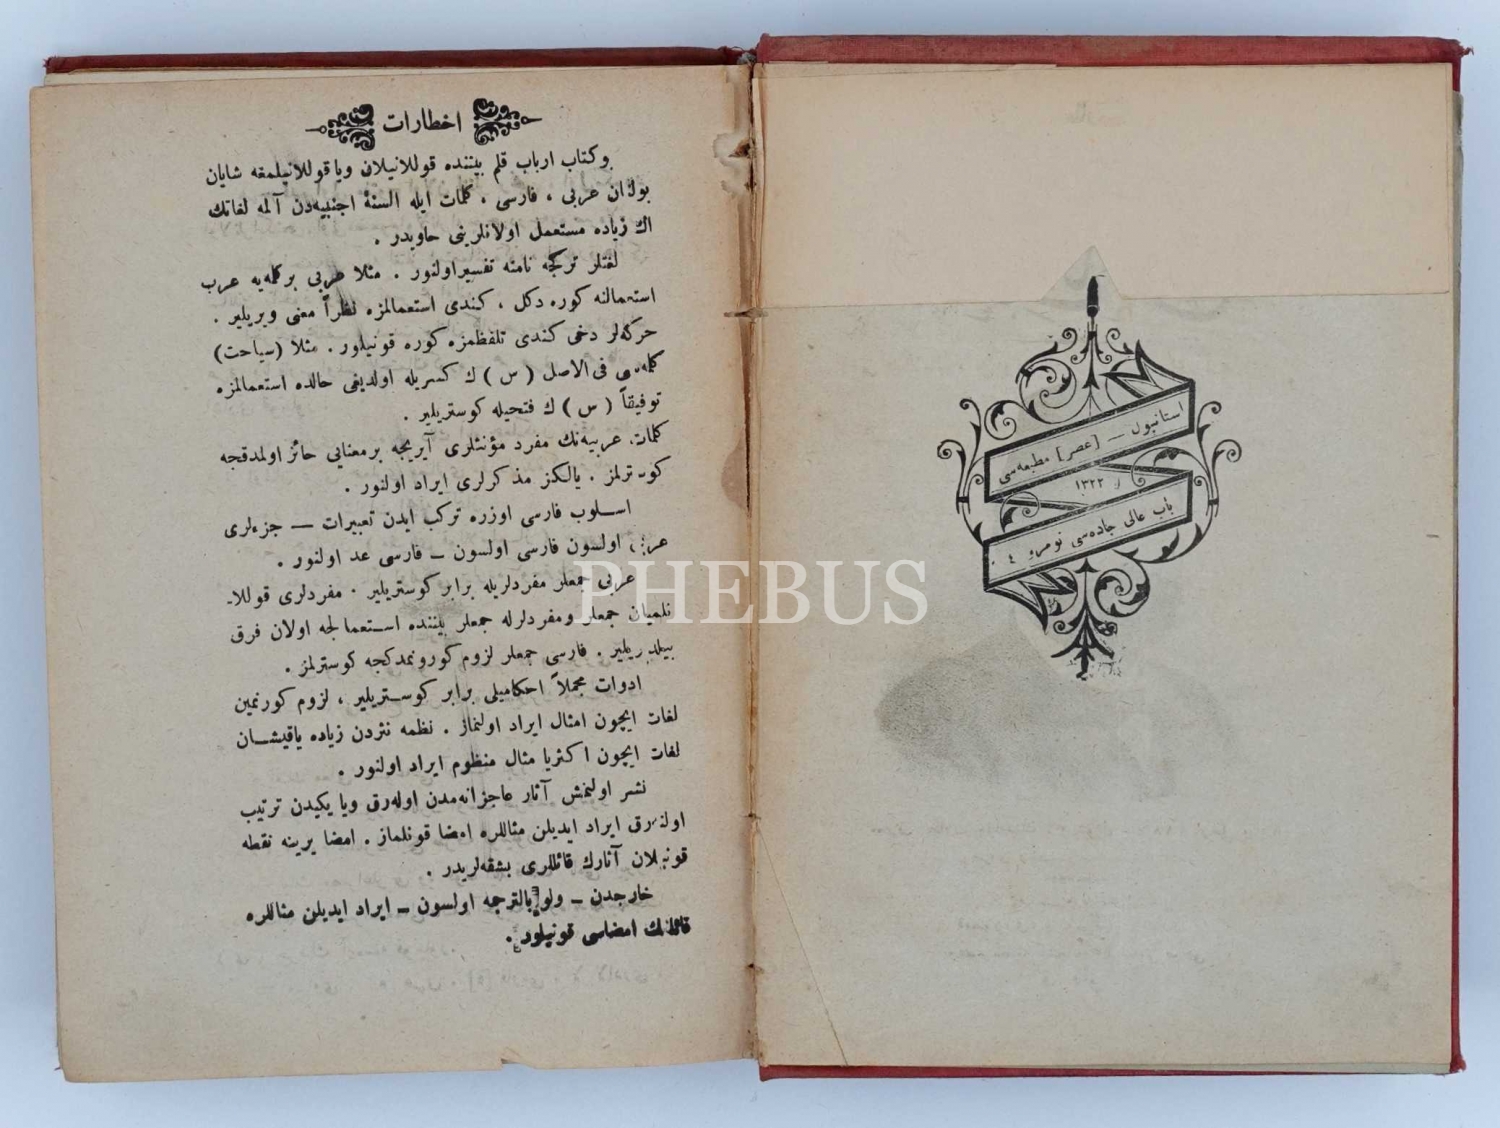 استانبول — [عصر] مطبعه‌سی
١٣٢٢
باب عالی جاده‌سی نومرو ٤٠
اخطارات
بو کتاب ارباب قلم بیننده قوللانیلان ویا قوللانیلمغه شایان
بولنان عربی ، فارسی ، کلمات ایله السنهٔ اجنبیه‌دن آلمه لغاتك
اك زیاده مستعمل اولانلرینی حاویدر .
لغتلر ترکجه نامنه تفسیر اولنور . مثلا عربی برکلمه‌یه عرب
استعمالنه کوره دکل ، کندی استعمالمزه نظراً معنی ویریلیر .
حرکه‌لر دخی کندی تلفظمزه کوره قونیلور . مثلا (سیاحت)
کلمه‌سی فی‌الاصل ( س ) ك کسریله اولدیغی حالده استعمالمزه
توفیقاً ( س ) ك فتحیله کوستریلیر .
کلمات عربیه‌نك مفرد مؤنثلری آیریجه برمعنایی حائز اولمدقجه
کوسترلمز . یالکز مذکرلری ایراد اولنور .
اسلوب فارسی اوزره ترکب ایدن تعبیرات — جزءلری
عربی ، اولسون فارسی اولسون — فارسی عد اولنور .
عربی جمعلر مفردلریله برابر کوستریلیر . مفردلری قوللا-
نلمیان جمعلر ومفردلرله جمعلر بیننده استعمالجه اولان فرق
بیلدیریلیر . فارسی جمعلر لزوم کورونمدکجه کوسترلمز .
ادوات مجملاً احکامیلی برابر کوستریلیر ، لزوم کورنمین
لغات ایچون امثال ایراد اولنماز . نظمه نثردن زیاده یاقیشان
لغات ایچون اکثریا مثال منظوم ایراد اولنور .
نشر اولنمش آثار عاجزانه‌مدن اوله‌رق ویا یکیدن ترتیب
اولنه‌رق ایراد ایدیلن مثاللره امضا قونلماز . امضا یرینه نقطه
قونیلان آثارك قائللری بشقه‌لریدر .
خارجدن — ولو بالترجه اولسون — ایراد ایدیلن مثاللره
قائلنك امضاسی قونیلور .
PHEBUS